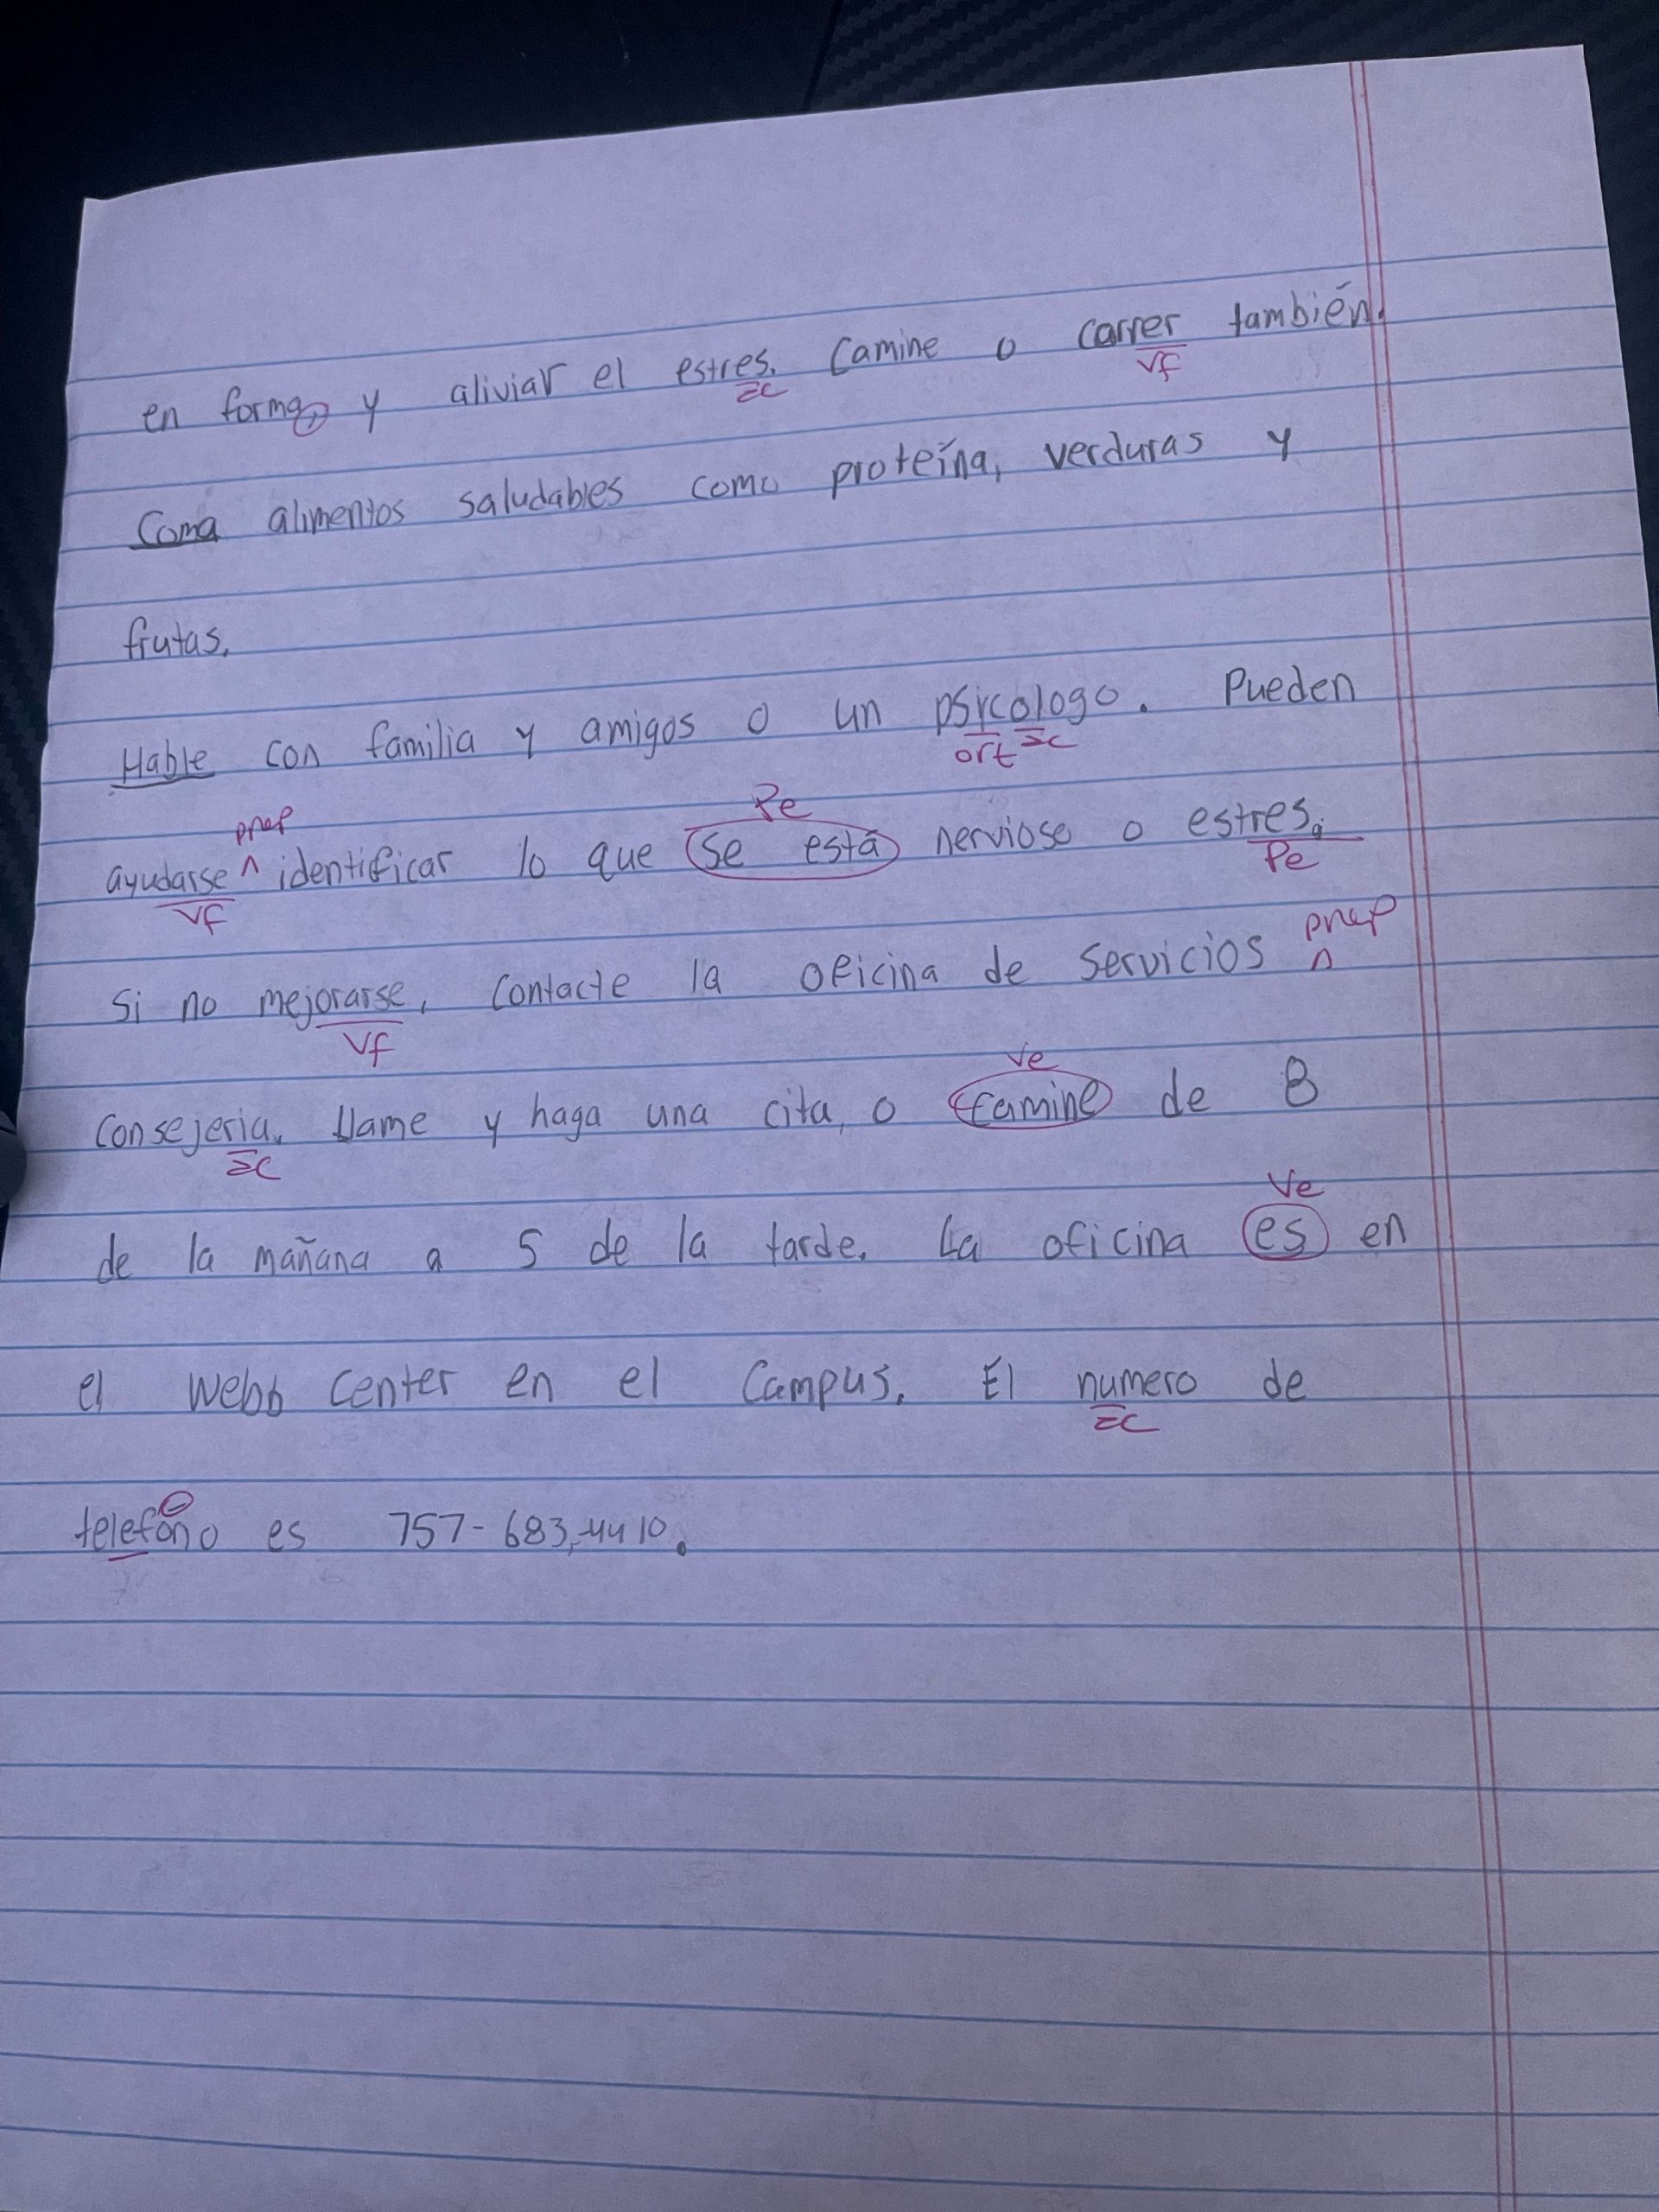 en forma, y aliviar el estres. Camine o carrer también.
ac
vf
Coma alimentos saludables como proteína, verduras y
frutas.
Hable con familia y amigos o un psrcologo. Pueden
ort ac
prep
Pe
ayudarse ^ identificar lo que se está nervioso o estres.
vf
Pe
prep
Si no mejorarse, contacte la oficina de servicios ^
vf
ve
consejeria. Llame y haga una cita, o camine de 8
ac
ve
de la mañana a 5 de la tarde. La oficina es en
el Webb Center en el Campus. El numero de
ac
telefóno es 757-683-4410.